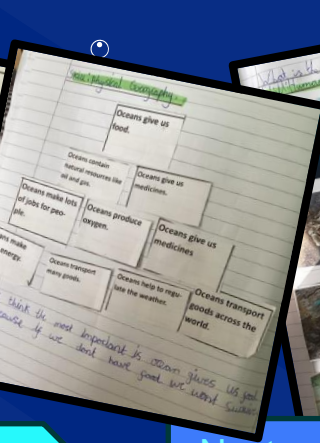 Physical Geography.
What is the
Oceans give us
food.
Oceans contain
natural resources like
oil and gas.
Oceans give us
medicines.
Oceans make lots
of jobs for peo-
ple.
Oceans produce
oxygen.
Oceans give us
medicines
make
energy.
Oceans transport
many goods.
Oceans help to regu-
late the weather.
Oceans transport
goods across the
world.
think the most important is ocean gives us food
if we dont have food we wont